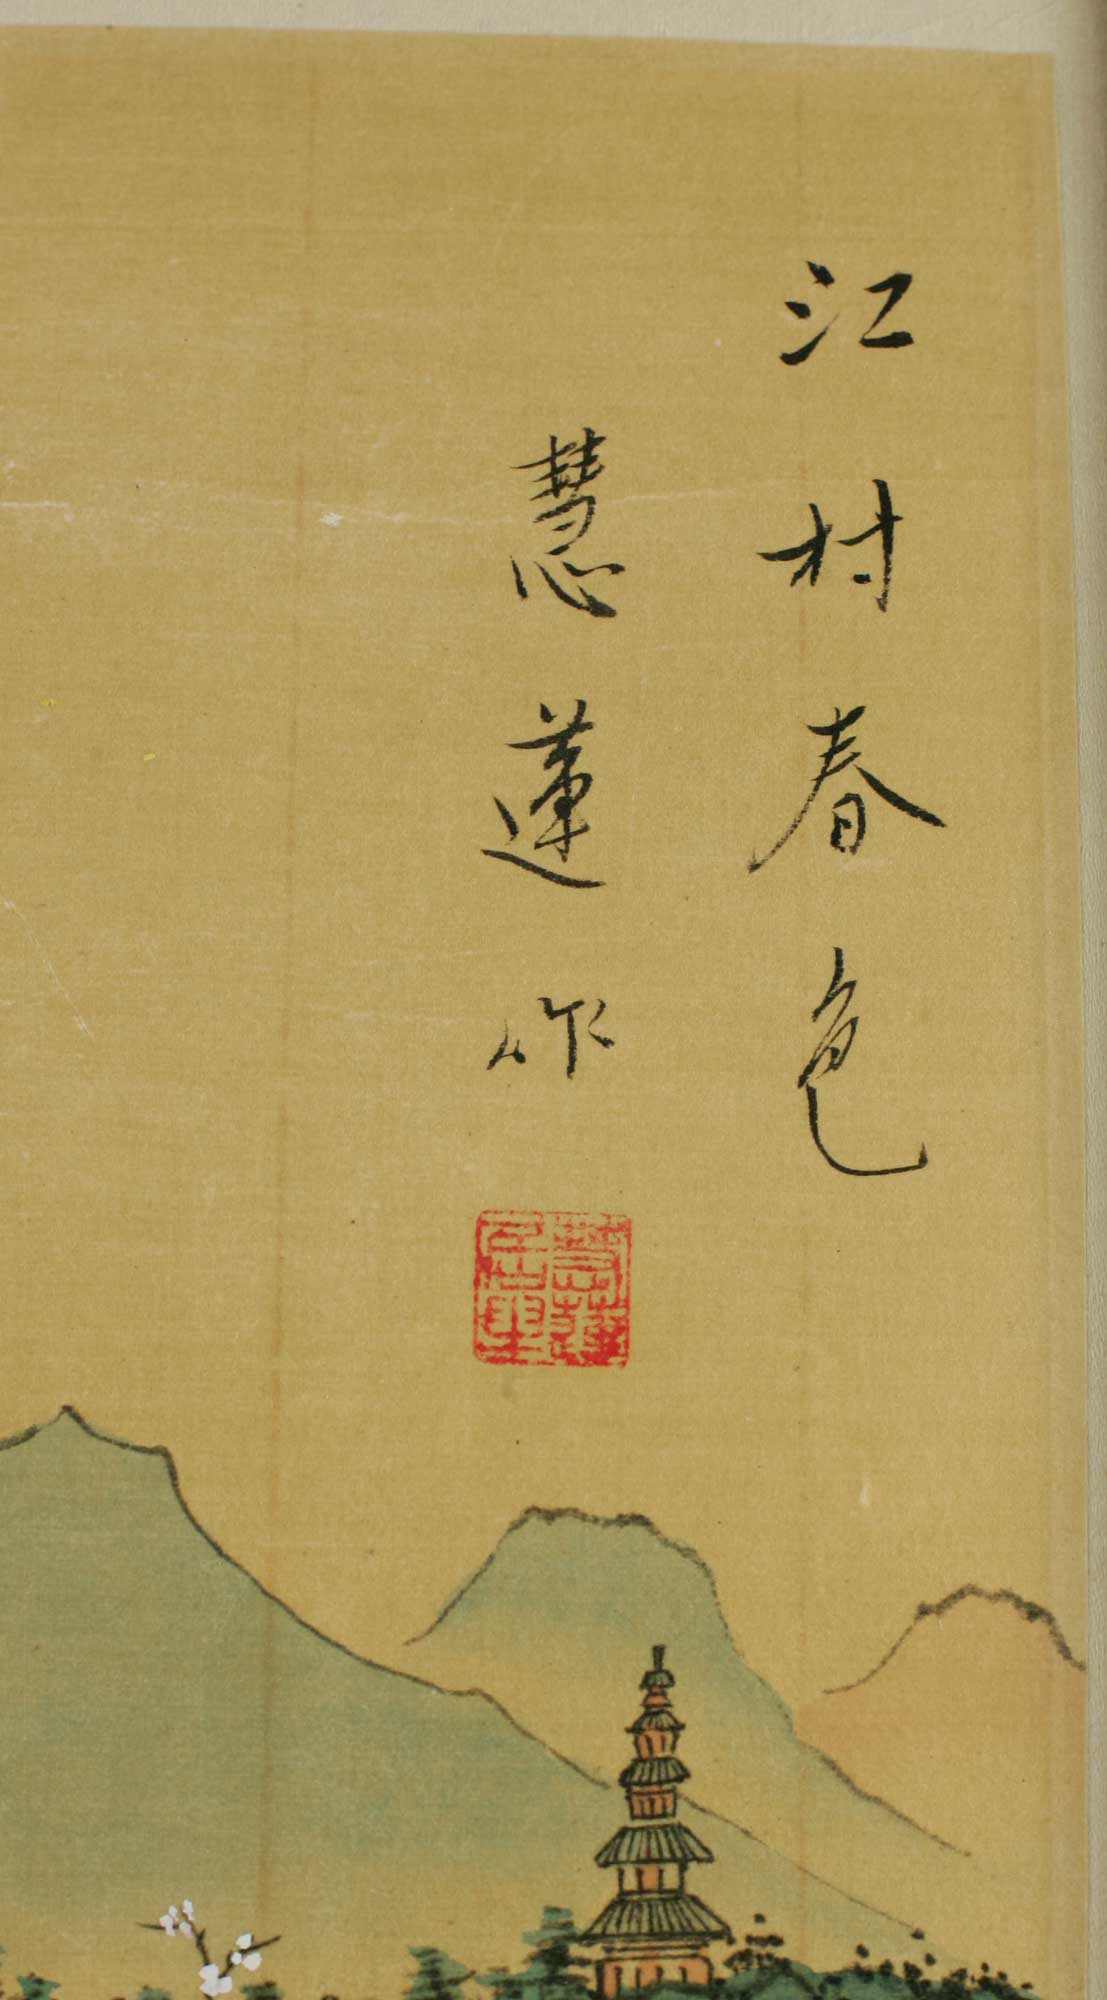 江村春色
慧蓮作